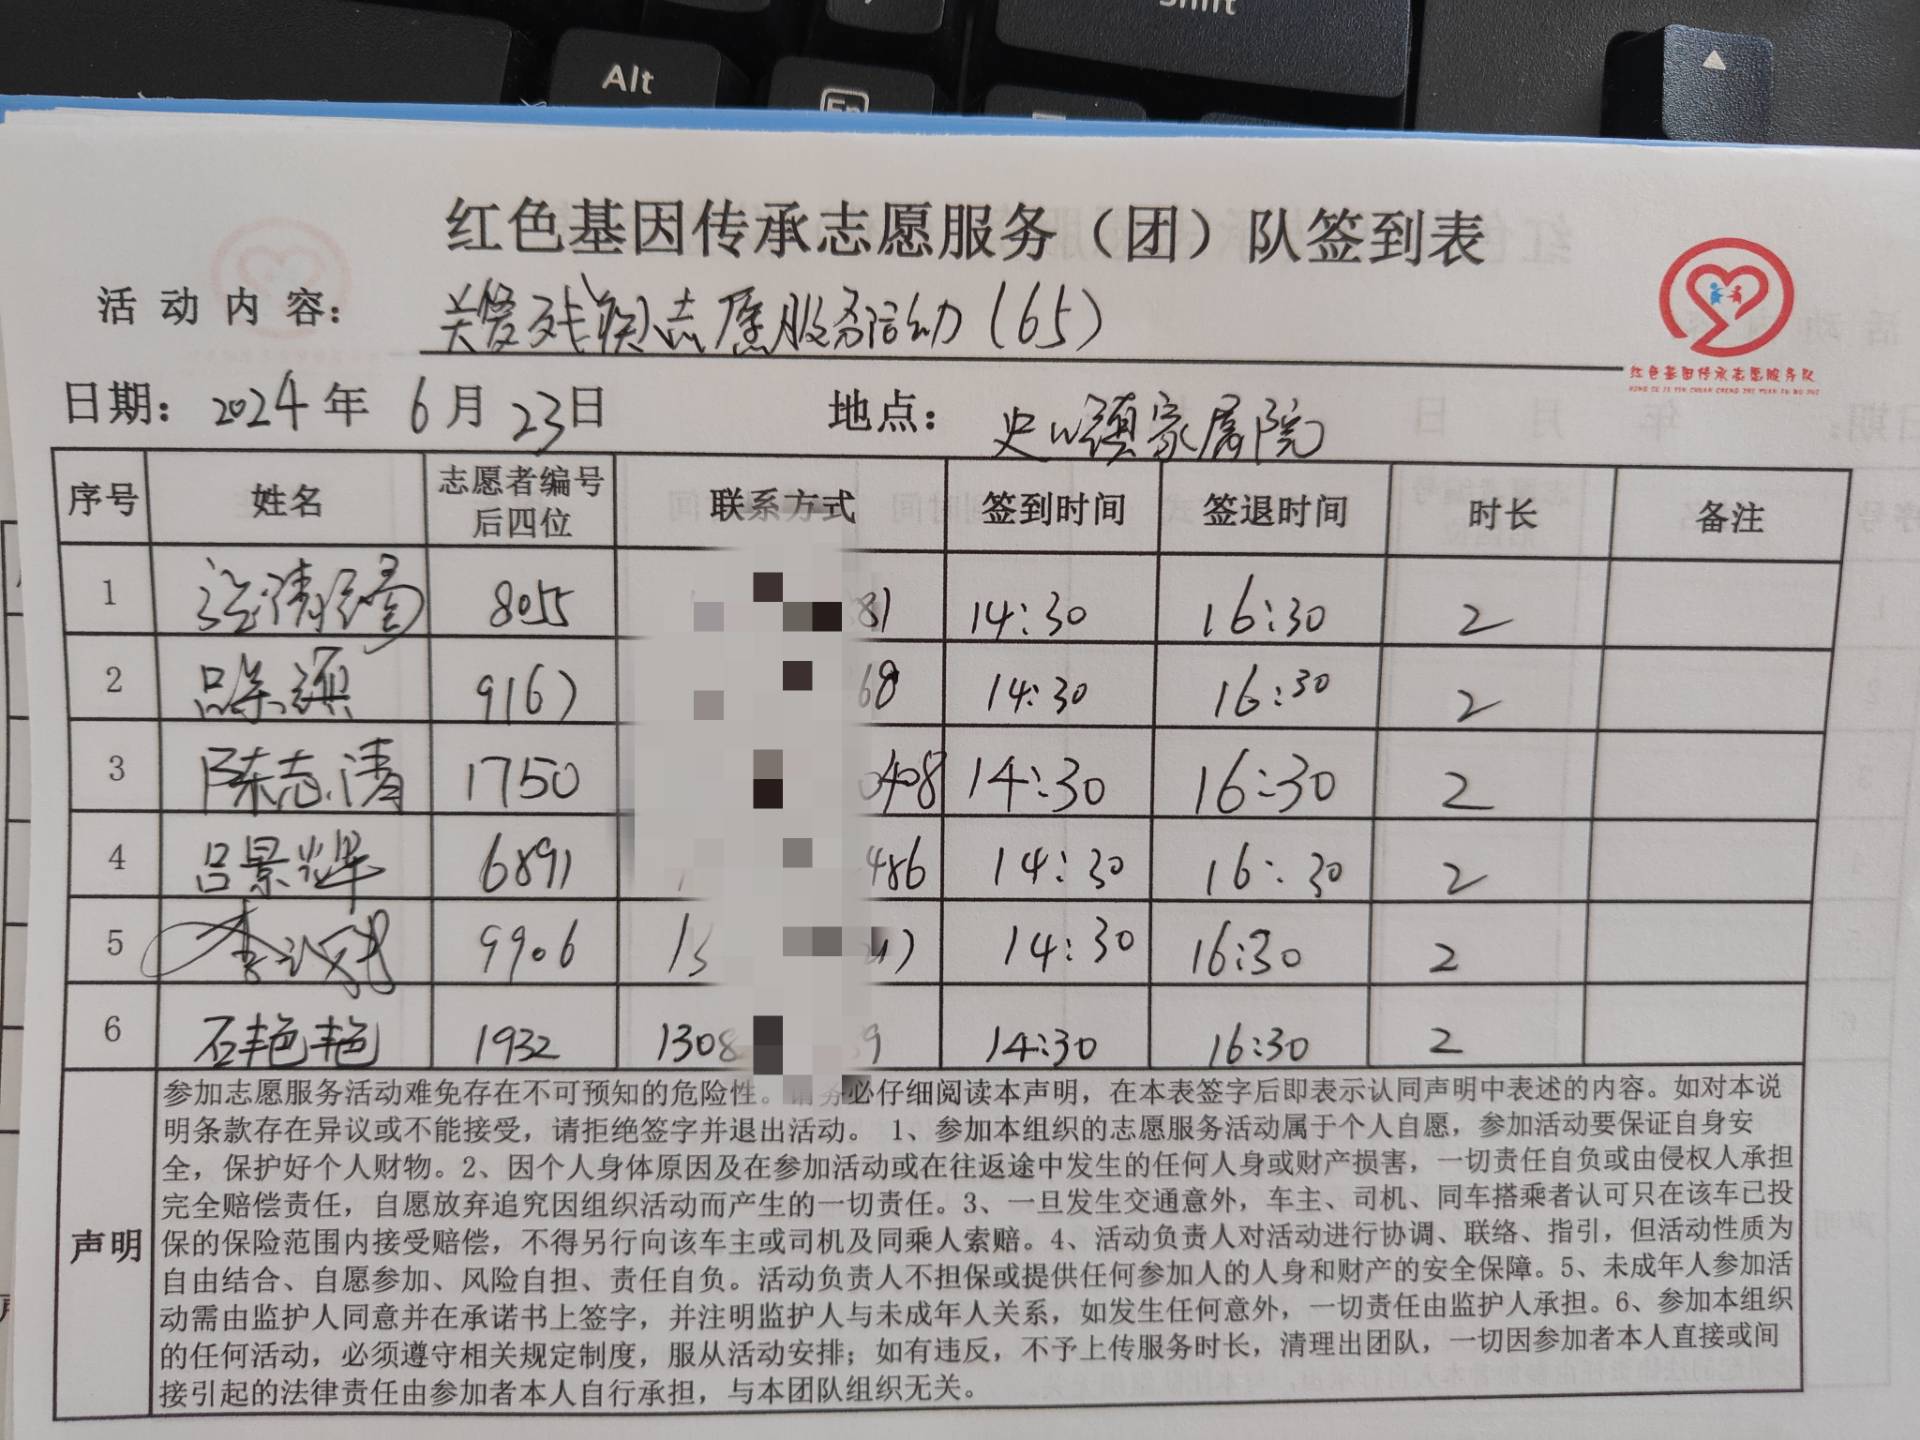 Shift
Alt
Fn
红色基因传承志愿服务（团）队签到表
活动内容： 关爱残疾志愿服务活动（65）
红色基因传承志愿服务队
HONG SE JI YIN CHUAN CHENG ZHI YUAN FU WU DUI
日期：2024年6月23日 地点：史山镇家属院
序号 姓名 志愿者编号后四位 联系方式 签到时间 签退时间 时长 备注
1 8055 81 14:30 16:30 2
2 吕 9167 68 14:30 16:30 2
3 陈志清 1750 0408 14:30 16:30 2
4 吕景华 6891 486 14:30 16:30 2
5 李 9906 13 14:30 16:30 2
6 石艳艳 1932 1308 9 14:30 16:30 2
声明
参加志愿服务活动难免存在不可预知的危险性。请务必仔细阅读本声明，在本表签字后即表示认同声明中表述的内容。如对本说
明条款存在异议或不能接受，请拒绝签字并退出活动。 1、参加本组织的志愿服务活动属于个人自愿，参加活动要保证自身安
全，保护好个人财物。2、因个人身体原因及在参加活动或在往返途中发生的任何人身或财产损害，一切责任自负或由侵权人承担
完全赔偿责任，自愿放弃追究因组织活动而产生的一切责任。3、一旦发生交通意外，车主、司机、同车搭乘者认可只在该车已投
保的保险范围内接受赔偿，不得另行向该车主或司机及同乘人索赔。4、活动负责人对活动进行协调、联络、指引，但活动性质为
自由结合、自愿参加、风险自担、责任自负。活动负责人不担保或提供任何参加人的人身和财产的安全保障。5、未成年人参加活
动需由监护人同意并在承诺书上签字，并注明监护人与未成年人关系，如发生任何意外，一切责任由监护人承担。6、参加本组织
的任何活动，必须遵守相关规定制度，服从活动安排；如有违反，不予上传服务时长，清理出团队，一切因参加者本人直接或间
接引起的法律责任由参加者本人自行承担，与本团队组织无关。